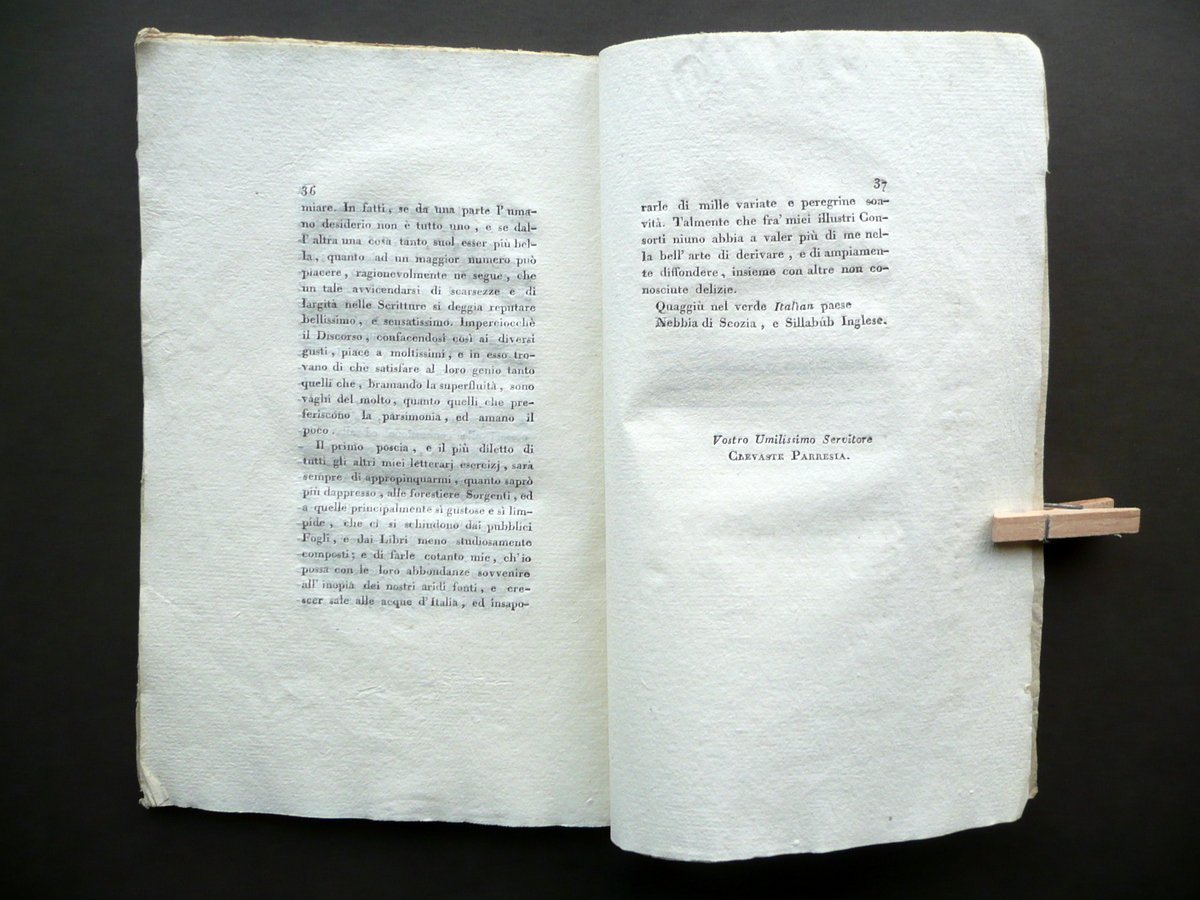 36
miare. In fatti, se da una parte l'uma-
no desiderio non è tutto uno, e se dal-
l'altra una cosa tanto suol esser più bel-
la, quanto ad un maggior numero può
piacere, ragionevolmente ne segue, che
un tale avvicendarsi di scarsezze e di
largità nelle Scritture si deggia reputare
bellissimo, e sensatissimo. Imperciocchè
il Discorso, confacendosi così ai diversi
gusti, piace a moltissimi, e in esso tro-
vano di che satisfare al loro genio tanto
quelli che, bramando la superfluità, sono
vaghi del molto, quanto quelli che pre-
feriscono la parsimonia, ed amano il
poco.
Il primo poscia, e il più diletto di
tutti gli altri miei letterarj esercizj, sarà
sempre di appropinquarmi, quanto saprò
più dappresso, alle forestiere Sorgenti, ed
a quelle principalmente sì gustose e sì lim-
pide, che ci si schiudono dai pubblici
Fogli, e dai Libri meno studiosamente
composti; e di farle cotanto mie, ch'io
possa con le loro abbondanze sovvenire
all'inopia dei nostri aridi fonti, e cre-
scer sale alle acque d'Italia, ed insapo-
37
rarle di mille variate e peregrine soa-
vità. Talmente che fra' miei illustri Con-
sorti niuno abbia a valer più di me nel-
la bell'arte di derivare, e di ampiamen-
te diffondere, insieme con altre non co-
nosciute delizie.
Quaggiù nel verde Italian paese
Nebbia di Scozia, e Sillabùb Inglese.
Vostro Umilissimo Servitore
CLEVASTE PARRESIA.